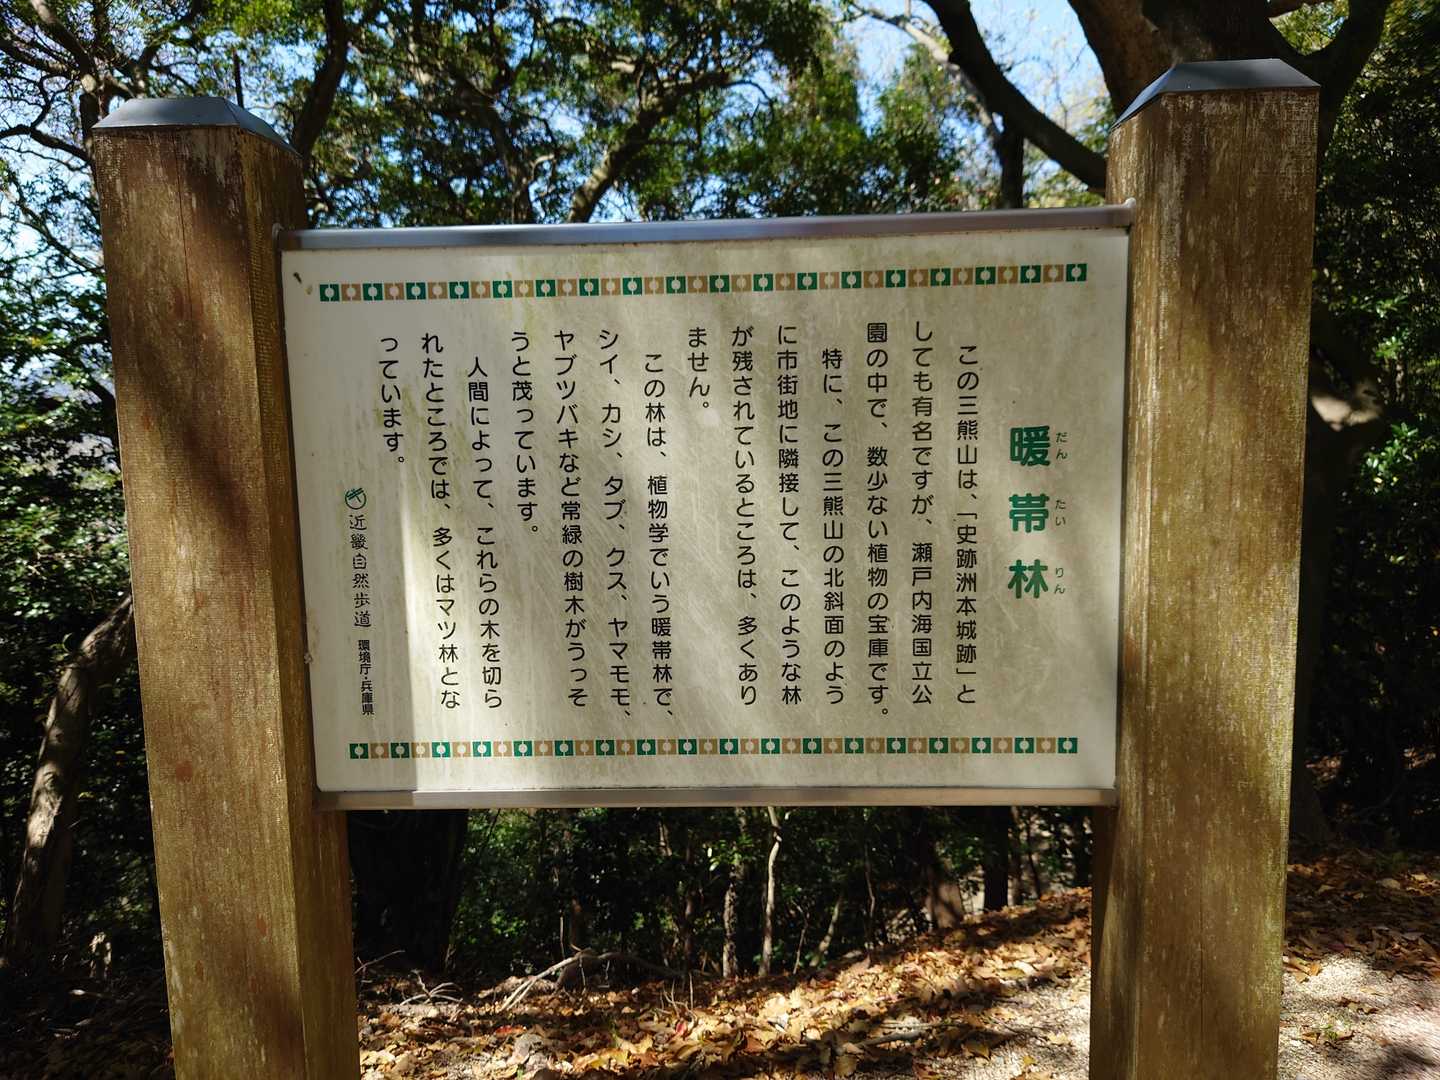 暖帯林
だんたいりん
この三熊山は、「史跡洲本城跡」と
しても有名ですが、瀬戸内海国立公
園の中で、数少ない植物の宝庫です。
特に、この三熊山の北斜面のよう
に市街地に隣接して、このような林
が残されているところは、多くあり
ません。
この林は、植物学でいう暖帯林で、
シイ、カシ、タブ、クス、ヤマモモ、
ヤブツバキなど常緑の樹木がうっそ
うと茂っています。
人間によって、これらの木を切ら
れたところでは、多くはマツ林とな
っています。
近畿自然歩道 環境庁・兵庫県